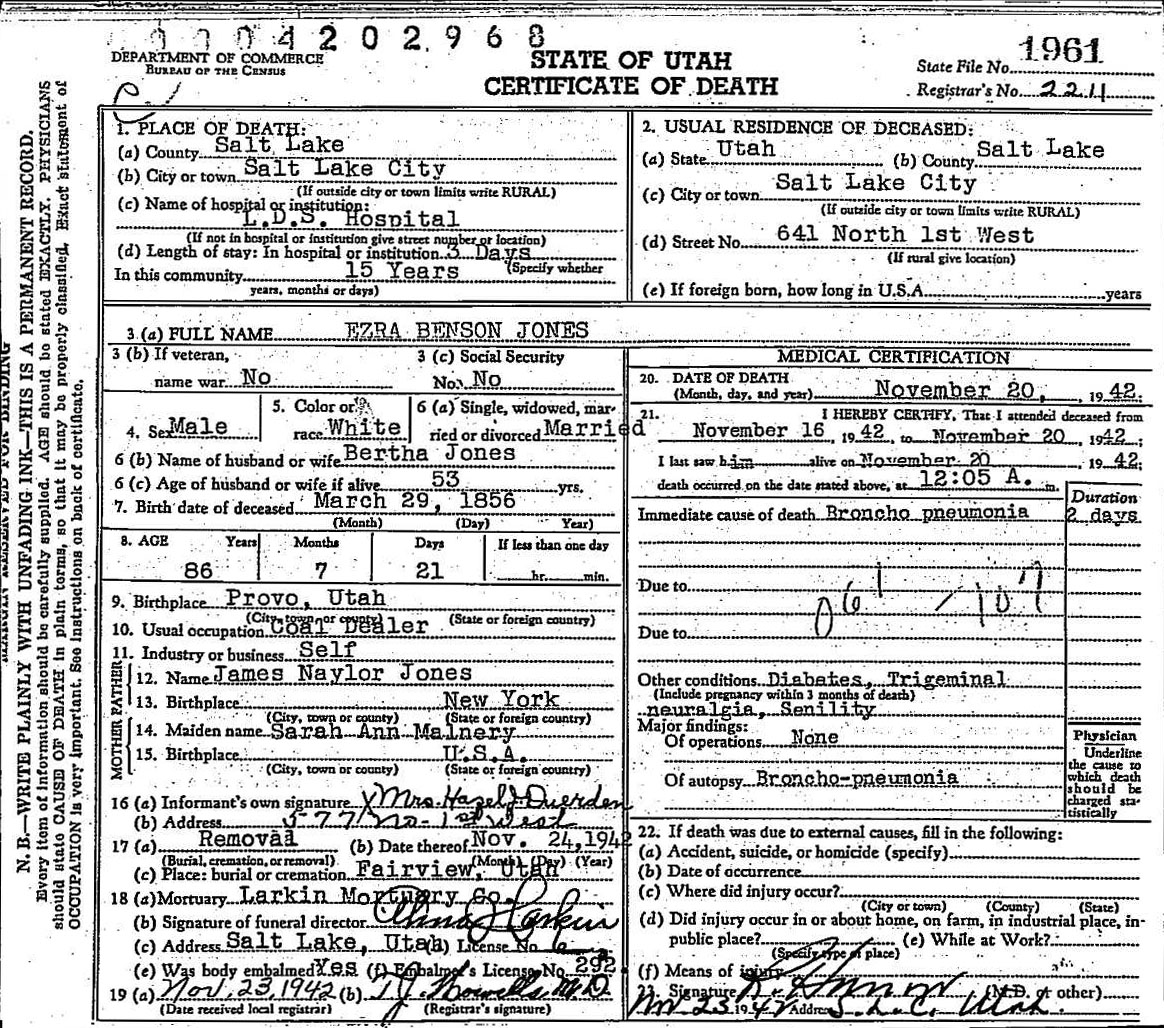 04202968
DEPARTMENT OF COMMERCE
BUREAU OF THE CENSUS
STATE OF UTAH
CERTIFICATE OF DEATH
State File No. 1961
Registrar's No. 2211
N. B.—WRITE PLAINLY WITH UNFADING INK—THIS IS A PERMANENT RECORD.
Every item of information should be carefully supplied. AGE should be stated EXACTLY. PHYSICIANS
should state CAUSE OF DEATH in plain terms, so that it may be properly classified. Exact statement of
OCCUPATION is very important. See instructions on back of certificate.
1. PLACE OF DEATH:
(a) County Salt Lake
(b) City or town Salt Lake City
(If outside city or town limits write RURAL)
(c) Name of hospital or institution:
L.D.S. Hospital
(If not in hospital or institution give street number or location)
(d) Length of stay: In hospital or institution 3 Days
(Specify whether
In this community 15 Years
years, months or days)
2. USUAL RESIDENCE OF DECEASED:
(a) State Utah (b) County Salt Lake
(c) City or town Salt Lake City
(If outside city or town limits write RURAL)
(d) Street No. 641 North 1st West
(If rural give location)
(e) If foreign born, how long in U.S.A. years
3 (a) FULL NAME EZRA BENSON JONES
3 (b) If veteran, name war No
3 (c) Social Security No. No
4. Sex Male
5. Color or race White
6 (a) Single, widowed, married or divorced Married
6 (b) Name of husband or wife Bertha Jones
6 (c) Age of husband or wife if alive 53 yrs.
7. Birth date of deceased March 29, 1856
(Month) (Day) Year)
8. AGE Years Months Days If less than one day
86 7 21 hr. min.
9. Birthplace Provo, Utah
(City, town or county) (State or foreign country)
10. Usual occupation Coal Dealer
11. Industry or business Self
FATHER
12. Name James Naylor Jones
13. Birthplace New York
(City, town or county) (State or foreign country)
MOTHER
14. Maiden name Sarah Ann Malnery
15. Birthplace U.S.A.
(City, town or county) (State or foreign country)
16 (a) Informant's own signature X Mrs. Hazel J Duerden
(b) Address 577 No. 1st West
17 (a) Removal (b) Date thereof Nov. 24, 1942
(Burial, cremation, or removal) (Month) (Day) (Year)
(c) Place: burial or cremation Fairview, Utah
18 (a) Mortuary Larkin Mortuary Co.
(b) Signature of funeral director Larkin
(c) Address Salt Lake, Utah (d) License No. 6
(e) Was body embalmed Yes (f) Embalmer's License No. 292
19 (a) Nov. 23, 1942 (b) T J. Howells M.D.
(Date received local registrar) (Registrar's signature)
MEDICAL CERTIFICATION
20. DATE OF DEATH
(Month, day, and year) November 20, 1942.
21. I HEREBY CERTIFY, That I attended deceased from
November 16, 1942, to November 20, 1942;
I last saw him alive on November 20, 1942;
death occurred on the date stated above, at 12:05 A. m.
Duration
Immediate cause of death Broncho pneumonia 2 days
Due to
107
Due to
Other conditions Diabates, Trigeminal
(Include pregnancy within 3 months of death)
neuralgia, Senility
Major findings:
Of operations None
Of autopsy Broncho-pneumonia
Physician
Underline
the cause to
which death
should be
charged sta-
tistically
22. If death was due to external causes, fill in the following:
(a) Accident, suicide, or homicide (specify)
(b) Date of occurrence
(c) Where did injury occur?
(City or town) (County) (State)
(d) Did injury occur in or about home, on farm, in industrial place, in-
public place? (e) While at Work?
(Specify type of place)
(f) Means of injury
23. Signature (M.D. or other)
Nov 23 1942 Address S.L.C. Utah.